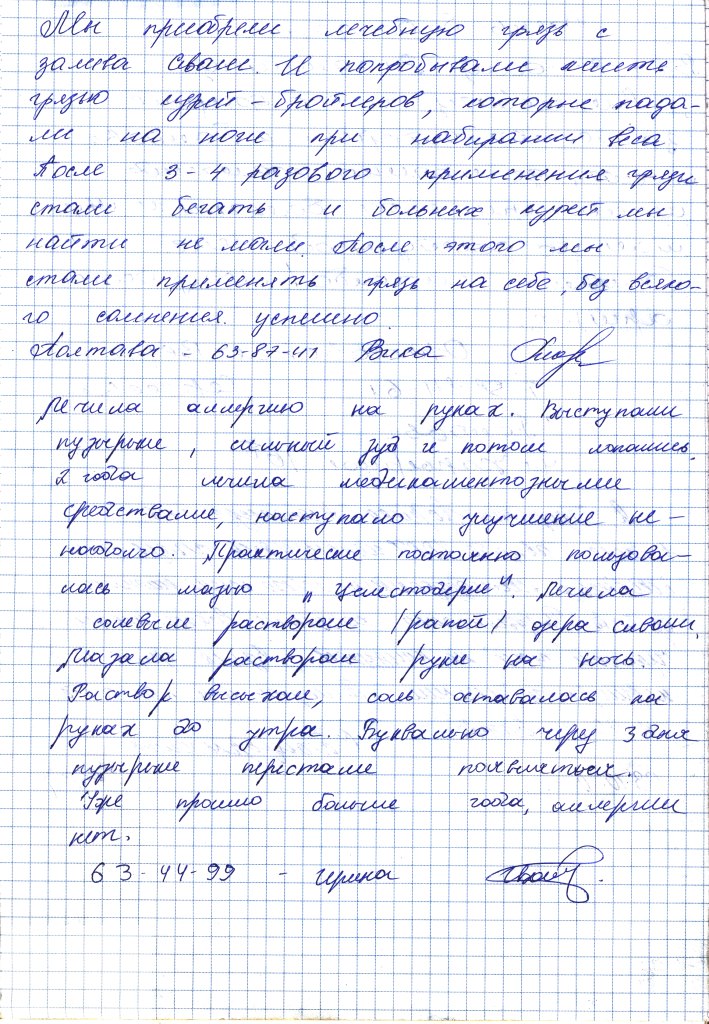 Мы приобрели лечебную грязь с
залива Сваш. И попробывали лечить
грязью курей - бройлеров, которые пада-
ли на ноги при набирании веса.
После 3-4 разового применения грязи
стали бегать и больных курей мы
найти не могли. После этого мы
стали применять грязь на себе, без всяко-
го сомнения. успешно.
Полтава - 63-87-41 Вика
Лечила аллергию на руках. Выступали
пузырьки, сильный зуд и потом лопались.
2 года лечила медикаментозными
средствами, наступало улучшение не-
надолго. Практически постоянно пользова-
лась мазью "Целестодерм". Лечила
солевым раствором (рапой) озера сиваш.
Мазала раствором руки на ночь.
Раствор высыхал, соль оставалась на
руках до утра. Буквально через 3 дня
пузырьки перестали появляться.
Уже прошло больше года, аллергии
нет.
63-44-99 - Ирина